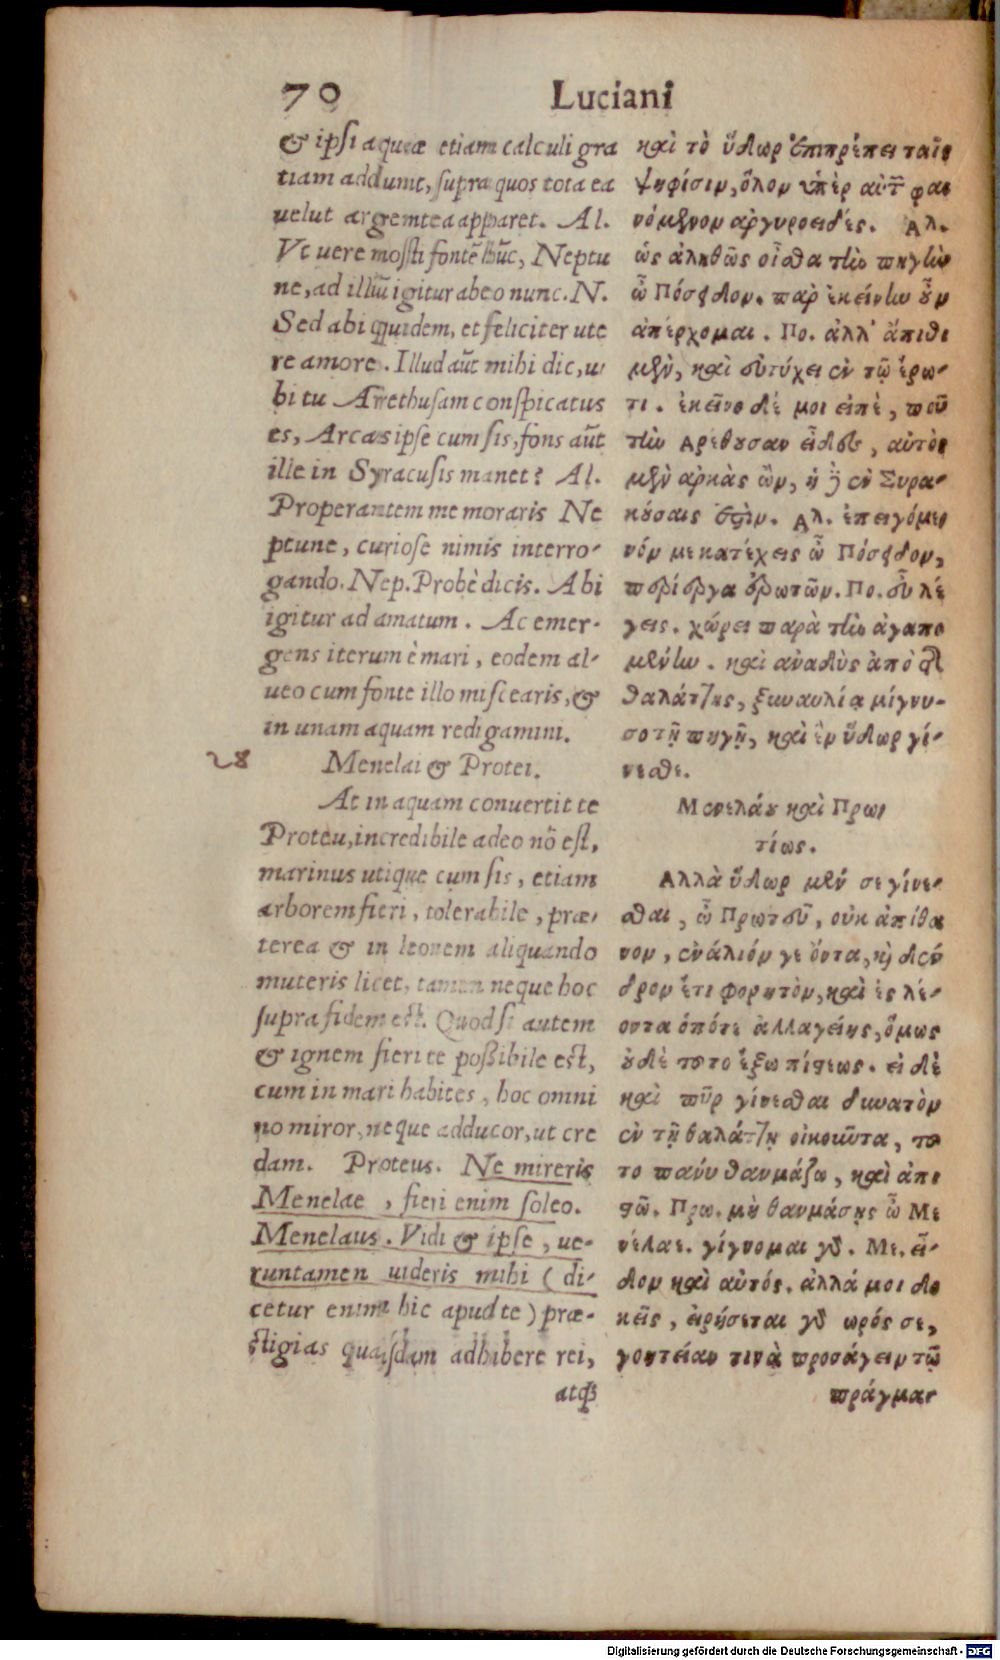 70 Luciani
& ipsi aquæ etiam calculi gra
tiam addunt, supra quos tota ea
uelut argentea apparet. Al.
Vt uere nosti fontẽ hũc, Neptu
ne, ad illũ igitur abeo nunc. N.
Sed abi quidem, et feliciter ute
re amore. Illud aũt mihi dic, u
bi tu Arethusam conspicatus
es, Arcas ipse cum sis, fons aũt
ille in Syracusis manet? Al.
Properantem me moraris Ne
ptune, curiose nimis interro-
gando. Nep. Probè dicis. Abi
igitur ad amatum. Ac emer-
gens iterum è mari, eodem al-
ueo cum fonte illo miscearis, &
in unam aquam redigamini.
28 Menelai & Protei.
At in aquam conuertit te
Proteu, incredibile adeo nõ est,
marinus utique cum sis, etiam
arborem fieri, tolerabile, præ-
terea & in leonem aliquando
muteris licet, tamen neque hoc
supra fidem est. Quod si autem
& ignem fieri te poßibile est,
cum in mari habites, hoc omni
no miror, neque adducor, ut cre
dam. Proteus. Ne mireris
Menelae, fieri enim soleo.
Menelaus. Vidi & ipse, ue-
runtamen uideris mihi (di-
cetur enim hic apud te) præ-
stigias quasdam adhibere rei,
atq́ꝫ
καὶ τὸ ὕδωρ ἐπιπρέπει ταῖς
ψηφίσιν, ὅλον ὑπὲρ αὐτῶν φαι
νόμενον ἀργυροειδές. Αλ.
ὡς ἀληθῶς οἶσθα τὴν πηγὴν
ὦ Πόσειδον. παρ' ἐκείνην οὖν
ἀπέρχομαι. Πο. ἀλλ' ἄπιθι
μὲν, καὶ εὐτύχει ἐν τῷ ἔρω-
τι. ἐκεῖνο δέ μοι εἰπὲ, ποῦ
τὴν Αρέθουσαν εἶδες, αὐτὸς
μὲν ἀρκὰς ὢν, ἡ δὲ ἐν Συρα-
κούσαις ἐστὶν. Αλ. ἐπειγόμε
νόν με κατέχεις ὦ Πόσειδον,
περίεργα ἐρωτῶν. Πο. εὖ λέ
γεις. χώρει παρὰ τὴν ἀγαπω
μένην. καὶ ἀναδὺς ἀπὸ τῆς
θαλάττης, ξυναυλίᾳ μίγνυ-
σο τῇ πηγῇ, καὶ ἓν ὕδωρ γί-
νεσθε.
Μενελάου καὶ Πρω
τέως.
Αλλὰ ὕδωρ μέν σε γίνε-
σθαι, ὦ Πρωτεῦ, οὐκ ἀπίθα
νον, ἐνάλιόν γε ὄντα, καὶ δέν
δρον ἔτι φορητὸν, καὶ ἐς λέ-
οντα ὁπότε ἀλλαγείης, ὅμως
οὐδὲ τοῦτο ἔξω πίστεως. εἰ δὲ
καὶ πῦρ γίνεσθαι δυνατὸν
ἐν τῇ θαλάττῃ οἰκοῦντα, τοῦ
το πάνυ θαυμάζω, καὶ ἀπι
στῶ. Πρω. μὴ θαυμάσῃς ὦ Με
νέλαε. γίγνομαι γάρ. Με. εἶ-
δον καὶ αὐτός. ἀλλά μοι δο
κεῖς, εἰρήσεται γὰρ πρός σε,
γοητείαν τινὰ προσάγειν τῷ
πράγμα-
Digitalisierung gefördert durch die Deutsche Forschungsgemeinschaft - DFG